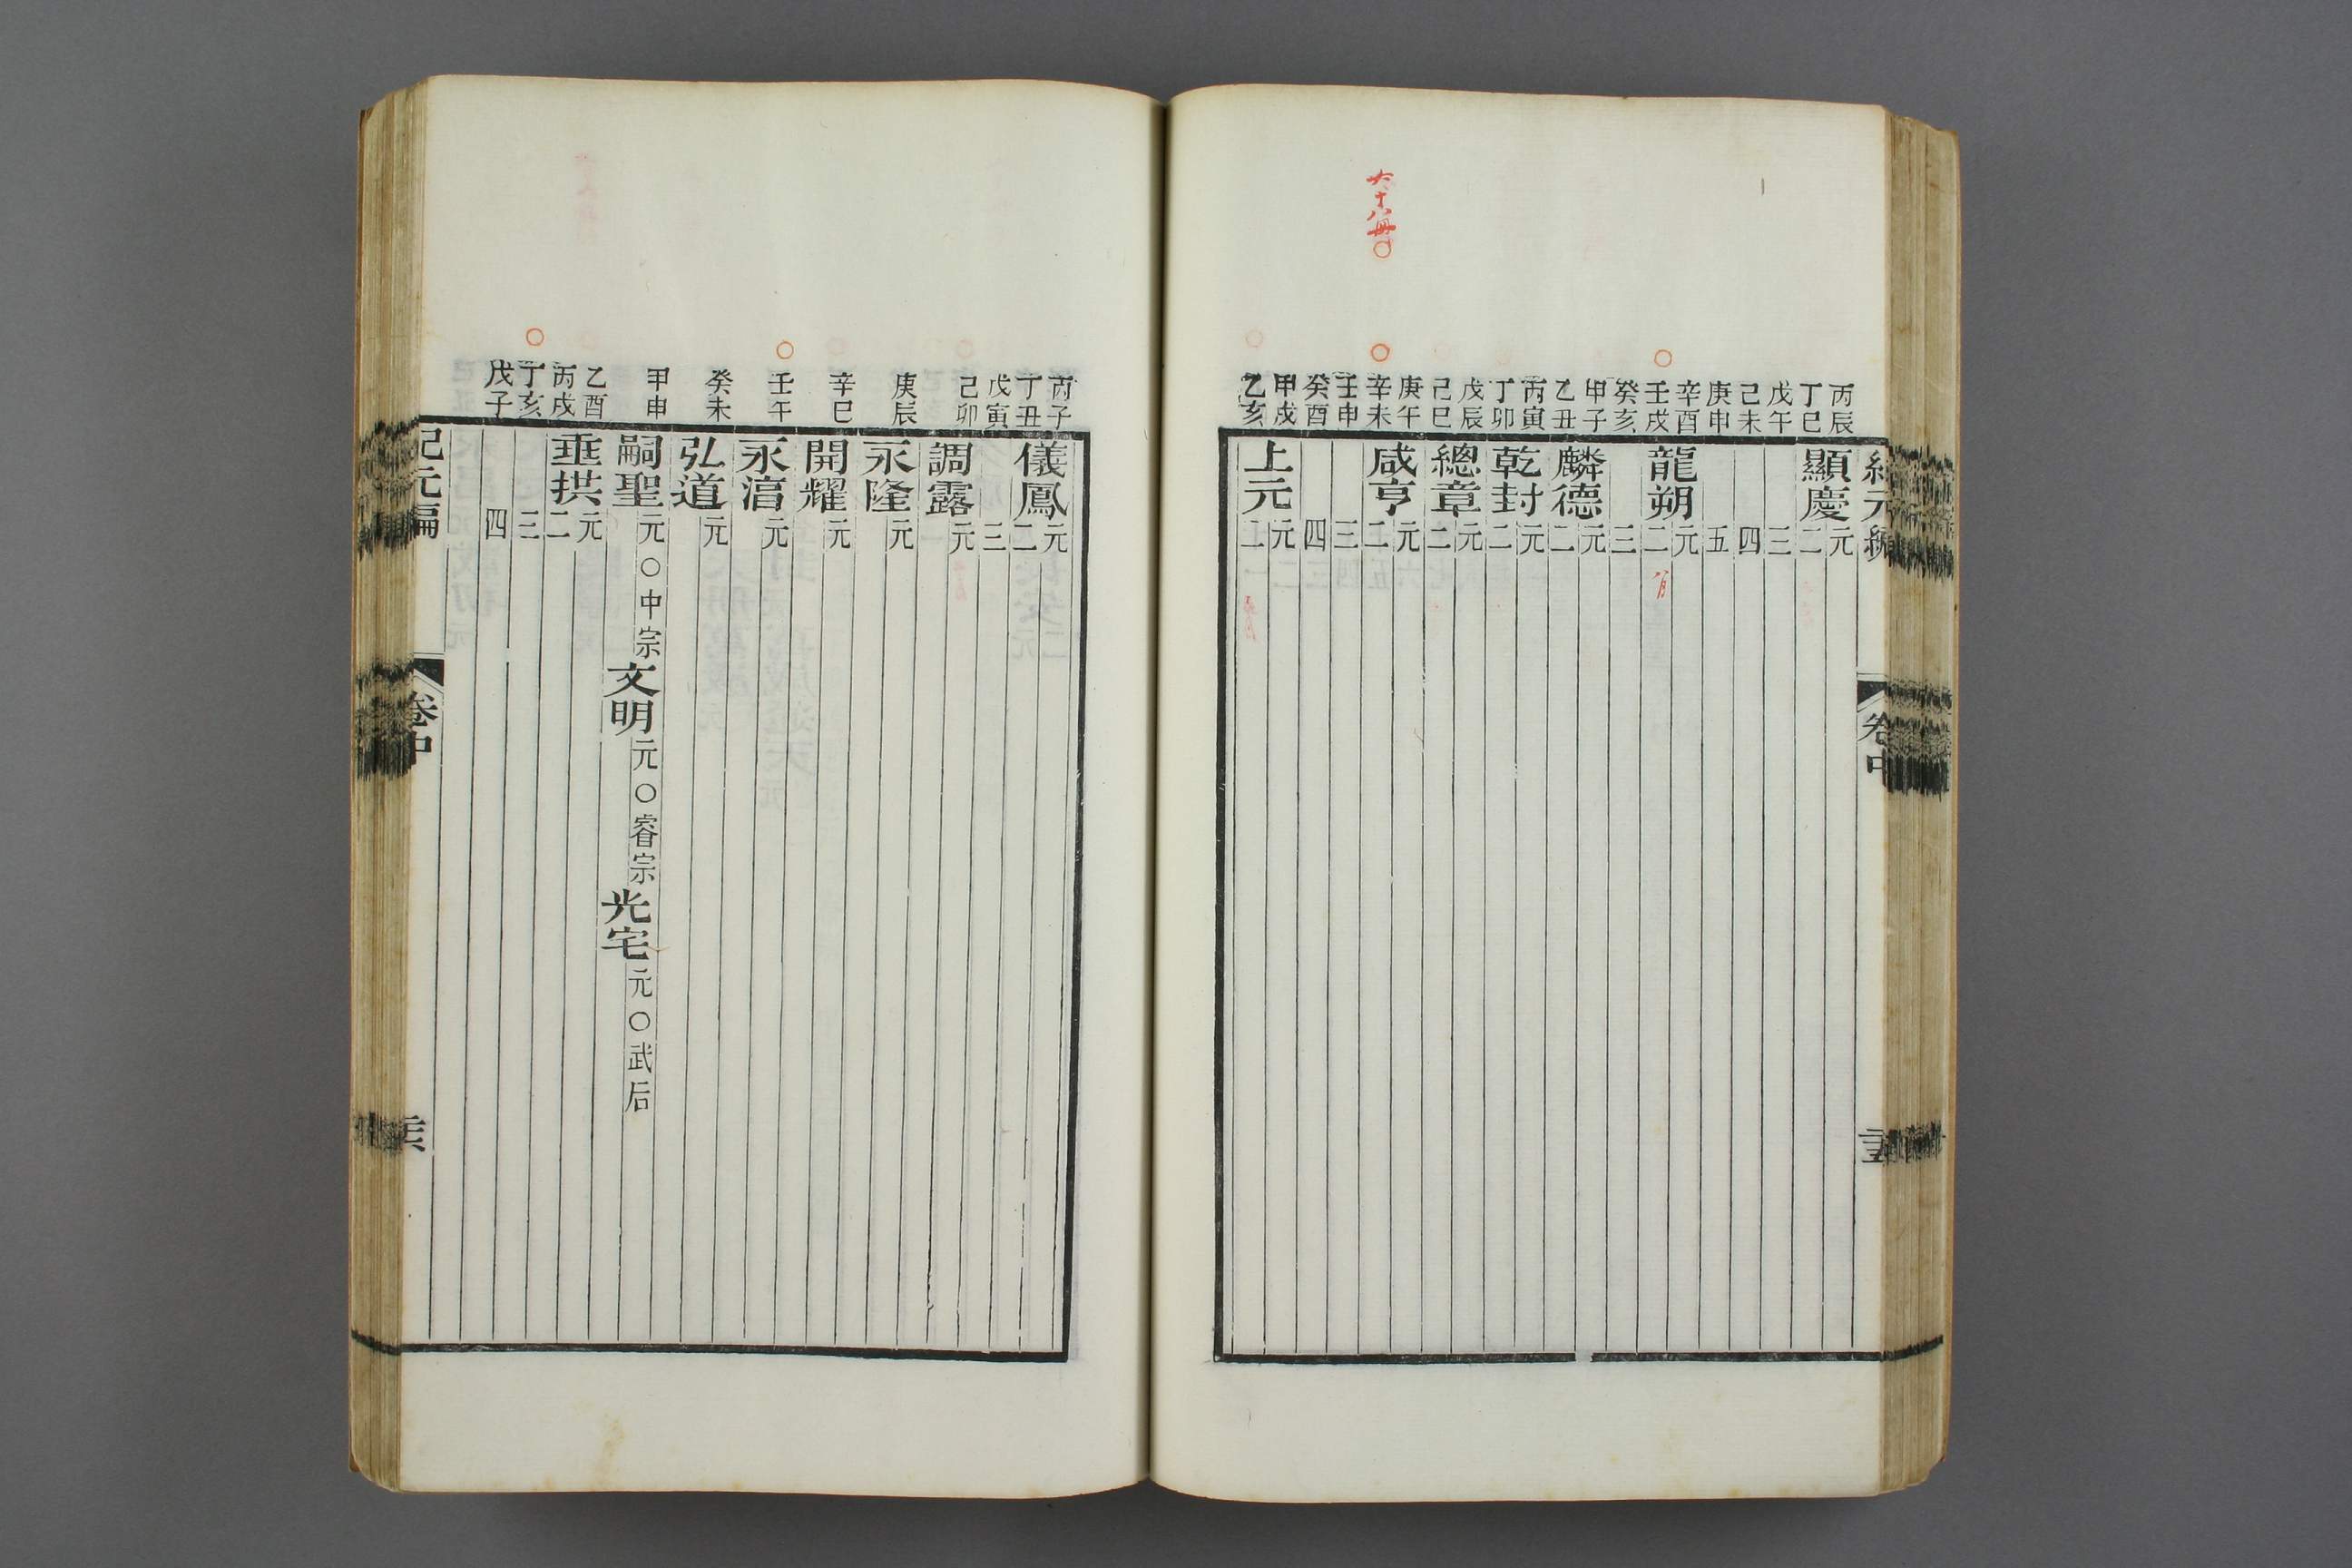 六十八冊〇
紀元編
卷中
丙辰 顯慶 元
丁巳 二
戊午 三
己未 四
庚申 五
辛酉 龍朔 元
壬戌 二 八月
癸亥 三
甲子 麟德 元
乙丑 二
丙寅 乾封 元
丁卯 二
戊辰 總章 元
己巳 二
庚午 咸亨 元
辛未 二
壬申 三
癸酉 四
甲戌 上元 元
乙亥 二
丙子 儀鳳 元
丁丑 二
戊寅 三
己卯 調露 元
庚辰 永隆 元
辛巳 開耀 元
壬午 永淳 元
癸未 弘道 元
甲申 嗣聖 元〇中宗 文明 元〇睿宗 光宅 元〇武后
乙酉 垂拱 元
丙戌 二
丁亥 三
戊子 四
紀元編
卷中